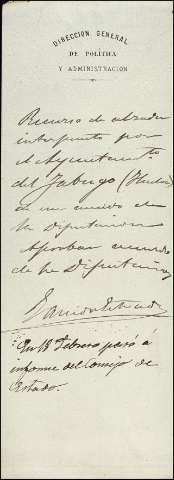 DIRECCION GENERAL
DE POLÍTICA
Y ADMINISTRACION
Recurso de alzada
interpuesto por
el Ayuntamto
del Jabugo (Huelva)
de un acuerdo de
la Diputacion
acuerdo
de la Diputacion
En 18 Febrero pasó á
informe del Consejo de
Estado.